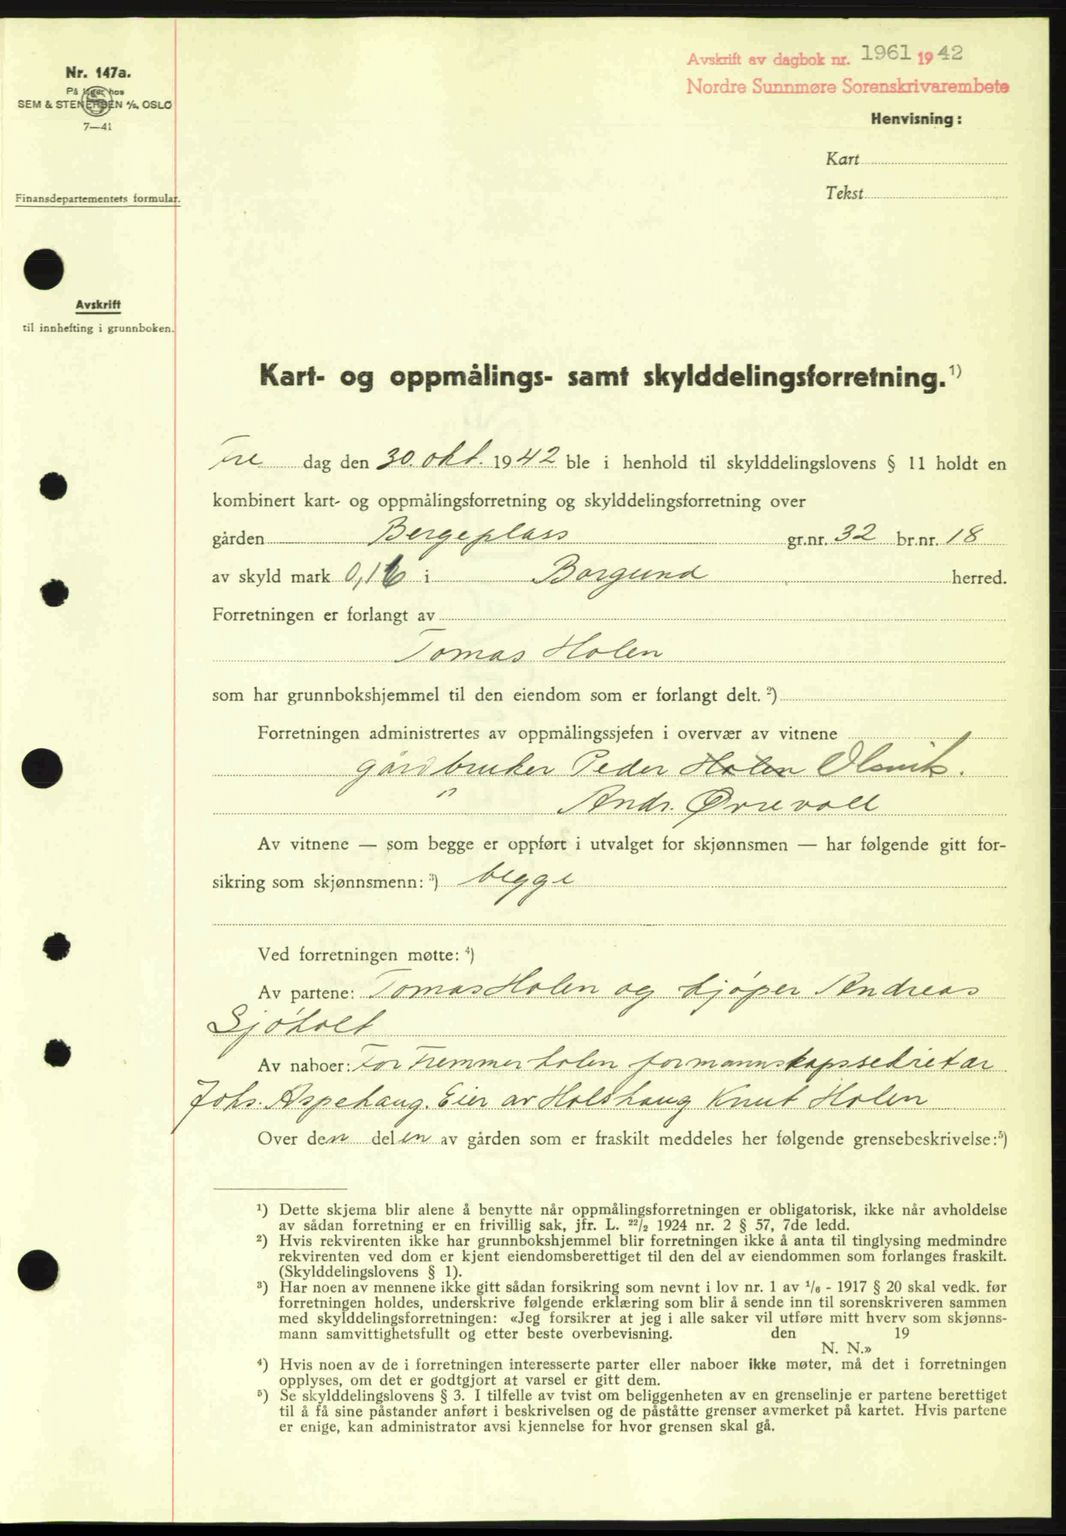 Nr. 147a.
På lager hos
SEM & STENERSEN A/S. OSLO
7—41
Finansdepartementets formular.
Avskrift
til innhefting i grunnboken.
Avskrift av dagbok nr. 1961 1942
Nordre Sunnmøre Sorenskrivarembete
Henvisning:
Kart
Tekst
Kart- og oppmålings- samt skylddelingsforretning.¹)
Fre dag den 30. okt. 1942 ble i henhold til skylddelingslovens § 11 holdt en
kombinert kart- og oppmålingsforretning og skylddelingsforretning over
gården Bergeplass gr.nr. 32 br.nr. 18
av skyld mark 0,16 i Borgund herred.
Forretningen er forlangt av
Tomas Holen
som har grunnbokshjemmel til den eiendom som er forlangt delt. ²)
Forretningen administrertes av oppmålingssjefen i overvær av vitnene
gårdbruker Peder Holen Olsvik.
" Andr. Ørsevoll
Av vitnene — som begge er oppført i utvalget for skjønnsmen — har følgende gitt for-
sikring som skjønnsmenn: ³) begge
Ved forretningen møtte: ⁴)
Av partene: Tomas Holen og kjøper Andreas
Sjøholt
Av naboer: For Fremmerholen formannskapssekretær
Johs. Aspehaug. Eier av Holshaug Knut Holen
Over den delen av gården som er fraskilt meddeles her følgende grensebeskrivelse:⁵)
¹) Dette skjema blir alene å benytte når oppmålingsforretningen er obligatorisk, ikke når avholdelse
av sådan forretning er en frivillig sak, jfr. L. 22/2 1924 nr. 2 § 57, 7de ledd.
²) Hvis rekvirenten ikke har grunnbokshjemmel blir forretningen ikke å anta til tinglysing medmindre
rekvirenten ved dom er kjent eiendomsberettiget til den del av eiendommen som forlanges fraskilt.
(Skylddelingslovens § 1).
³) Har noen av mennene ikke gitt sådan forsikring som nevnt i lov nr. 1 av 1/6 - 1917 § 20 skal vedk. før
forretningen holdes, underskrive følgende erklæring som blir å sende inn til sorenskriveren sammen
med skylddelingsforretningen: «Jeg forsikrer at jeg i alle saker vil utføre mitt hverv som skjønns-
mann samvittighetsfullt og etter beste overbevisning. den 19
N. N.»
⁴) Hvis noen av de i forretningen interesserte parter eller naboer ikke møter, må det i forretningen
opplyses, om det er godtgjort at varsel er gitt dem.
⁵) Se skylddelingslovens § 3. I tilfelle av tvist om beliggenheten av en grenselinje er partene berettiget
til å få sine påstander anført i beskrivelsen og de påståtte grenser avmerket på kartet. Hvis partene
er enige, kan administrator avsi kjennelse for hvor grensen skal gå.